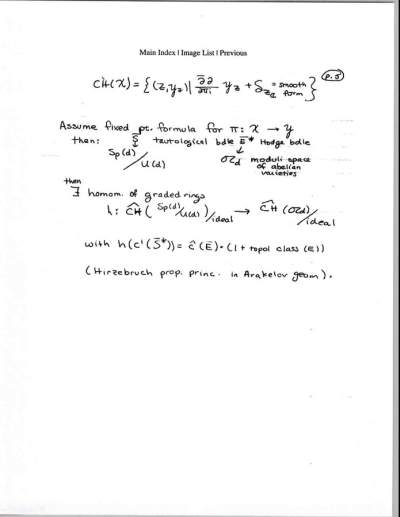 Main Index | Image List | Previous
p. 5
ĈH(X) = {(z, y_z) | ∂̄∂/2πi y_z + δ_z = smooth form}
Assume fixed pt. formula for π: X → Y
then: S̄ tautological bdle Ē* Hodge bdle
↓ ↓
Sp(d)/U(d) 𝔄_d moduli space of abelian varieties
then
∃ homom. of graded rings
h: ĈH(Sp(d)/U(d))/ideal → ĈH(𝔄_d)/ideal
with h(c'(S̄*)) = ĉ'(Ē)·(1 + topol class (E))
(Hirzebruch prop. princ. in Arakelov geom).